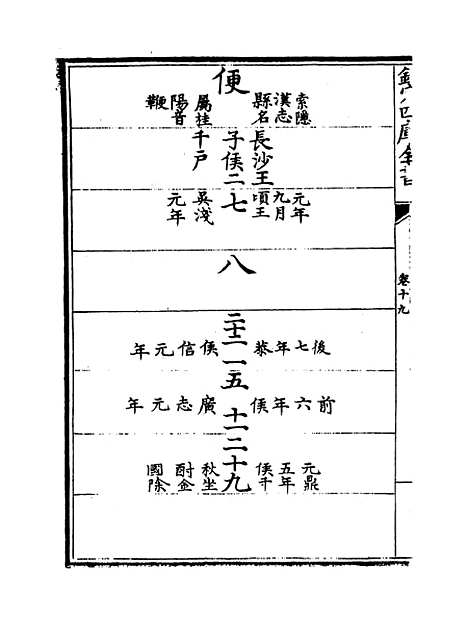 欽定四庫全書
卷十九
便
索隱
漢志
縣名
屬桂
陽音
鞭
長沙王
子侯二
千戶
七
元年
九月
頃王
吳淺
元年
八
二十二
一
後七年恭
侯信元年
五
十一
前六年侯
廣志元年
二十九
元鼎
五年
侯千
秋坐
酎金
國除